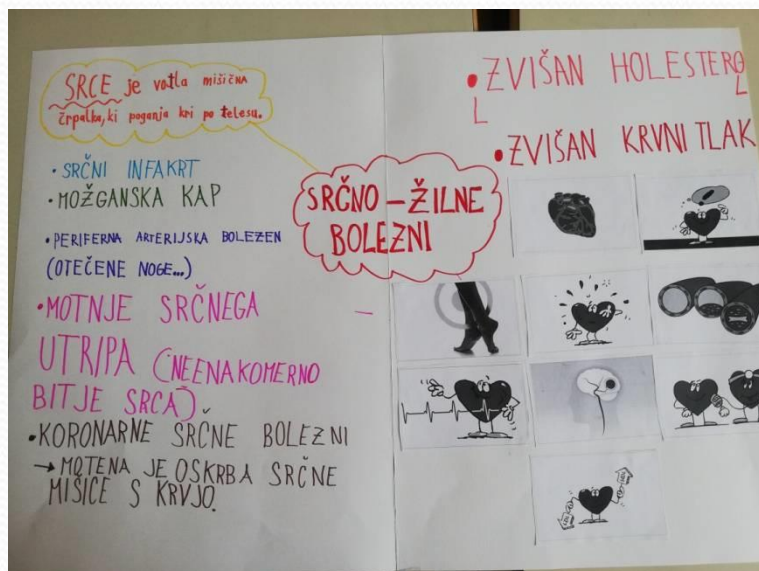 SRCE je votla mišična
črpalka, ki poganja kri po telesu.
• SRČNI INFAKRT
• MOŽGANSKA KAP
• PERIFERNA ARTERIJSKA BOLEZEN
(OTEČENE NOGE...)
• MOTNJE SRČNEGA
UTRIPA (NEENAKOMERNO
BITJE SRCA)
• KORONARNE SRČNE BOLEZNI
→ MOTENA JE OSKRBA SRČNE
MIŠICE S KRVJO.
SRČNO – ŽILNE
BOLEZNI
• ZVIŠAN HOLESTERO
L
• ZVIŠAN KRVNI TLAK